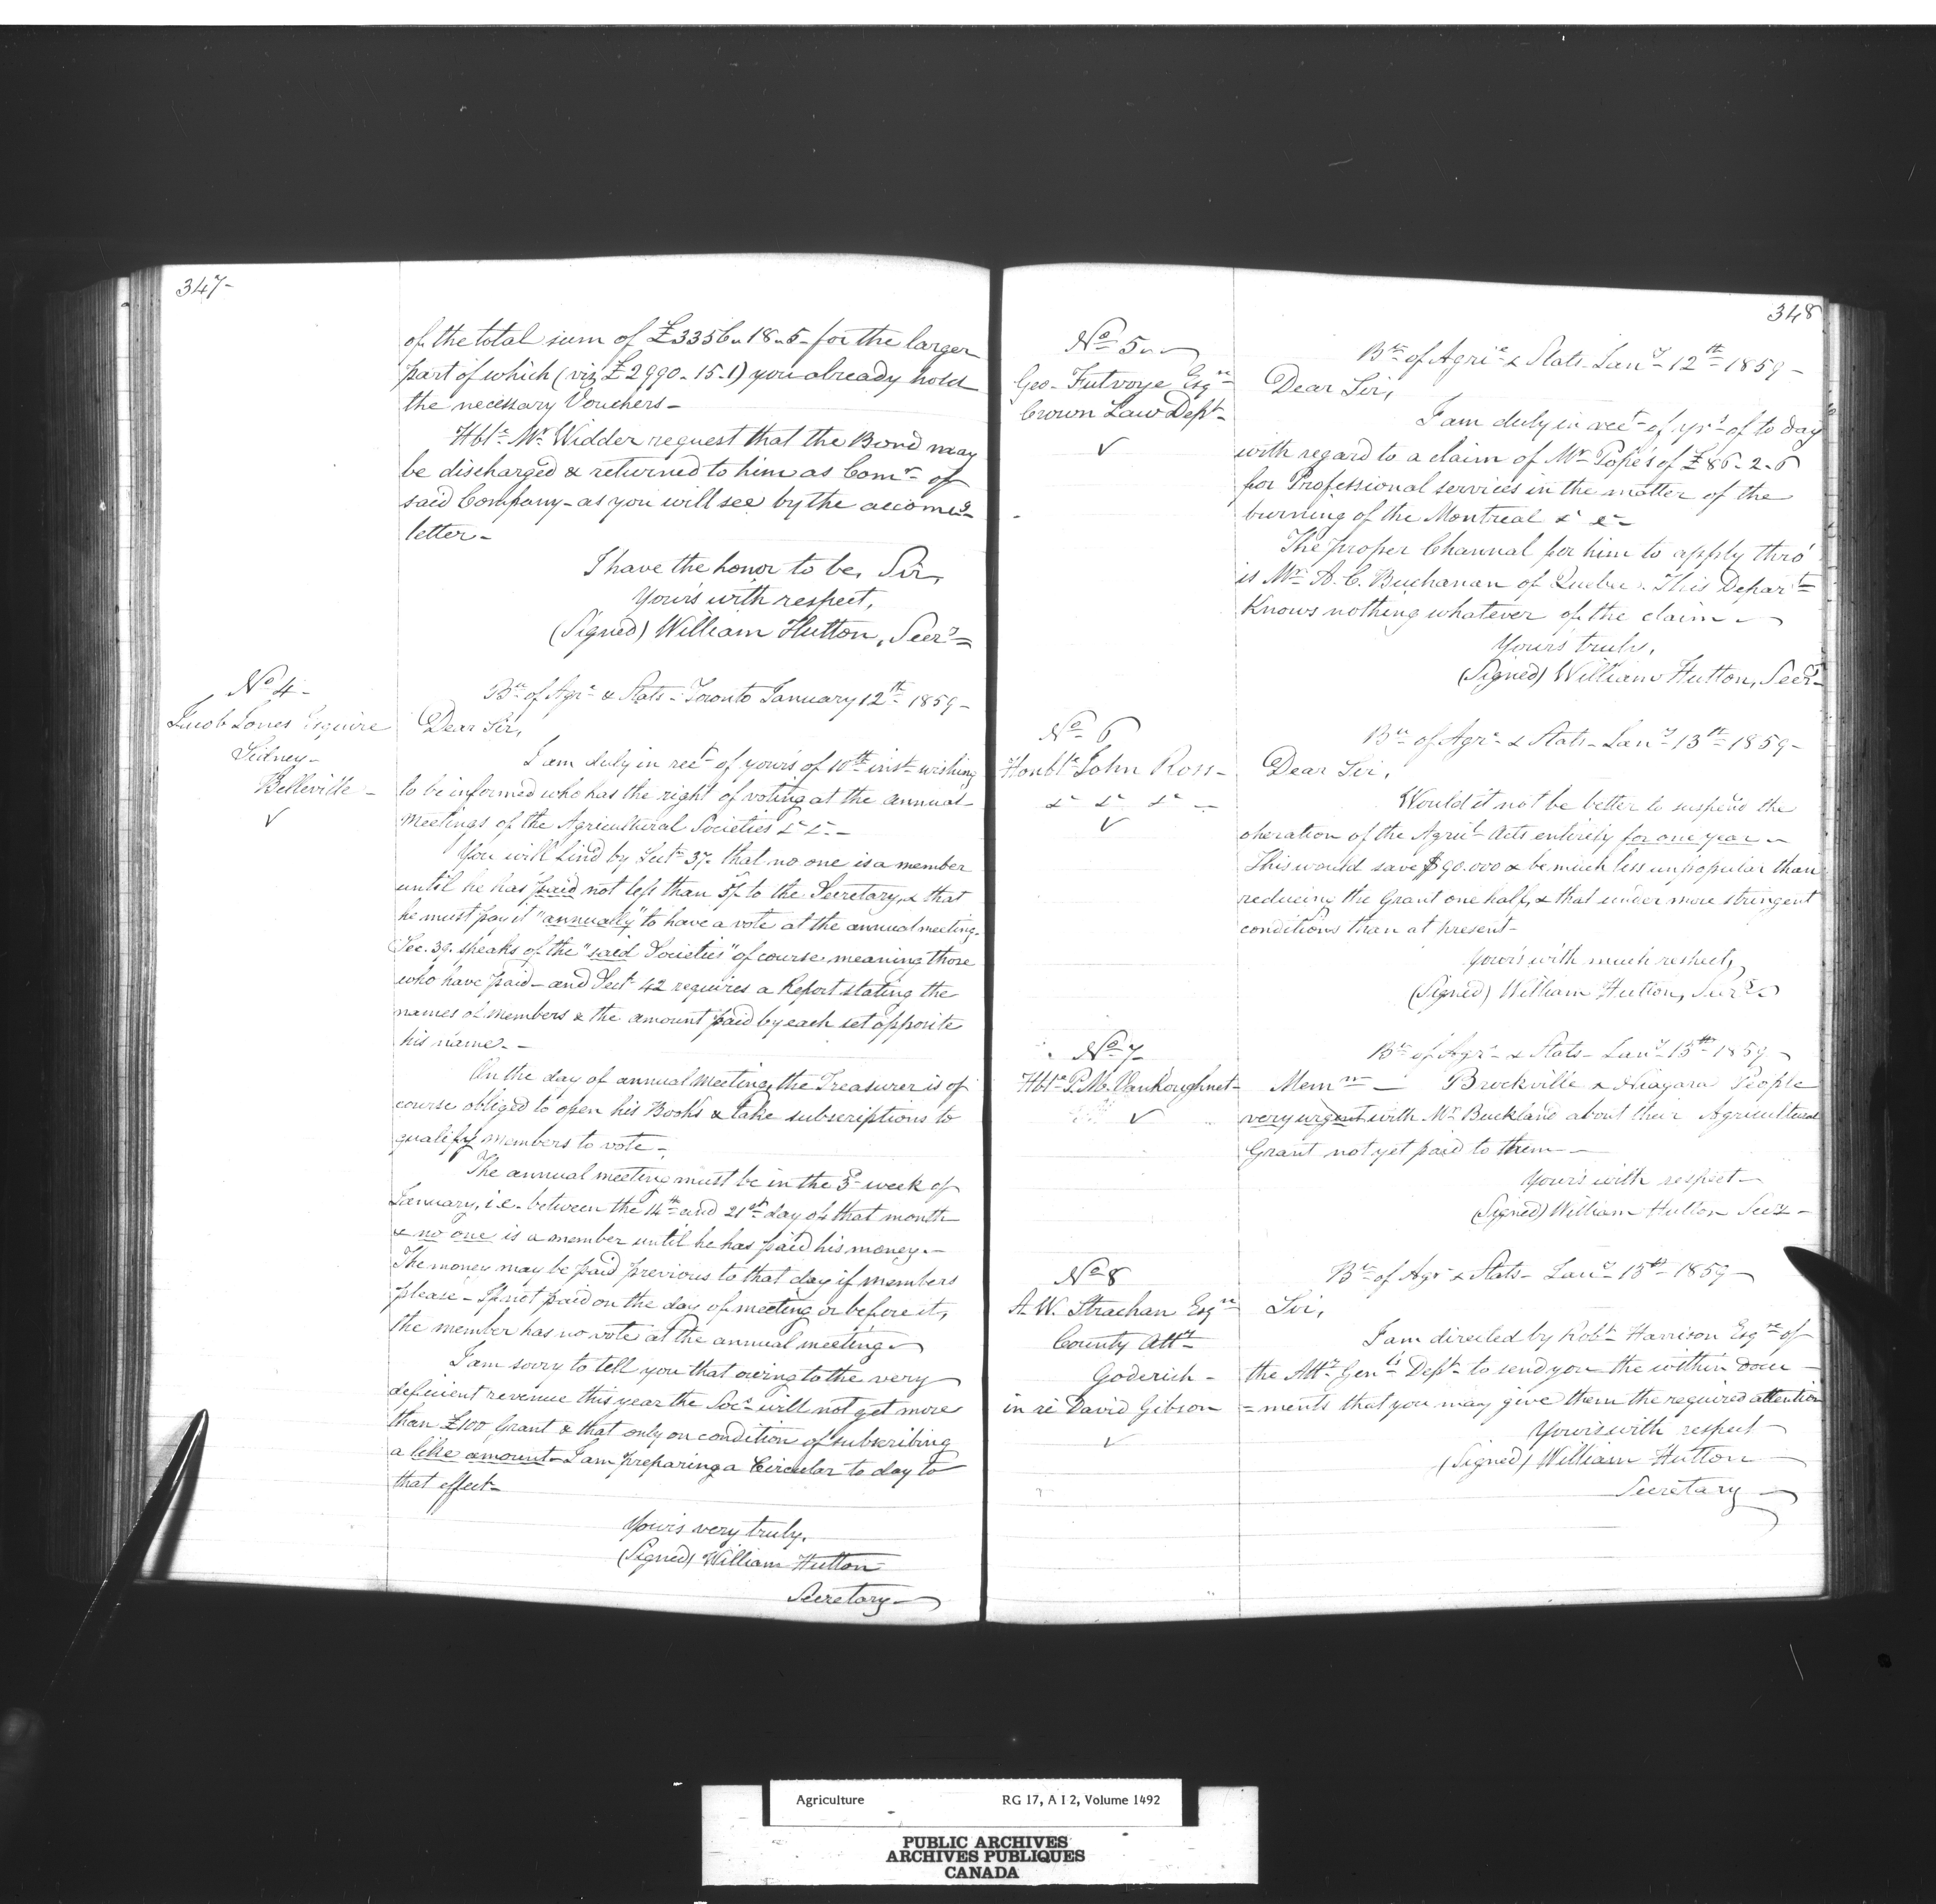 347-
of the total sum of £3356 " 18 " 5 - for the larger
part of which (viz £2990 - 15 - 1) you already hold
the necessary Vouchers -
Hble Mr Widder request that the Bond may
be discharged & returned to him as Comr of
said Company - as you will see by the accomg
letter -
I have the honor to be, Sir,
Yours with respect,
(Signed) William Hutton, Secry
No 4 -
Jacob Jones Esquire
Sidney -
Belleville -
Bu of Agre & Stats - Toronto January 12th 1859 -
Dear Sir,
I am duly in rect of yours of 10th inst wishing
to be informed who has the right of voting at the annual
meetings of the Agricultural Societies &c &c -
You will find by Sect 37. that no one is a member
until he has paid not less than 5/- to the Secretary, & that
he must pay it "annually" to have a vote at the annual meeting -
Sec. 39. speaks of the "said Societies" of course meaning those
who have paid - and Sect 42 requires a Report stating the
names of members & the amount paid by each set opposite
his name. -
On the day of annual meeting, the Treasurer is of
course obliged to open his Books & take subscriptions to
qualify members to vote -
The annual meeting must be in the 3d week of
January, i.e. between the 14th and 21st day of that month
& no one is a member until he has paid his money. -
The money may be paid previous to that day if members
please - If not paid on the day of meeting or before it,
the member has no vote at the annual meeting
I am sorry to tell you that owing to the very
deficient revenue this year the Socy will not get more
than £100 Grant & that only on condition of subscribing
a like amount - I am preparing a Circular to day to
that effect -
Yours very truly.
(Signed) William Hutton
Secretary
348
No 5
Geo - Futvoye Esqre
Crown Law Dept -
Bu of Agre & Stats - Jany 12th 1859 -
Dear Sir,
I am duly in rect of yrs of to day
with regard to a claim of Mr Pope's of £86 - 2 - 6
for Professional services in the matter of the
burning of the Montreal &c &c -
The proper Channal for him to apply thro'
is Mr A. C. Buchanan of Quebec. This Depart
Knows nothing whatever of the claim -
Yours truly,
(Signed) William Hutton, Secy -
No 6
Honble John Ross -
&c &c &c -
Bu of Agre & Stats - Jany 13th 1859 -
Dear Sir,
Would it not be better to suspend the
operation of the Agricl Acts entirely for one year -
This would save $90.000 & be much less unpopular than
reducing the Grant one half, & that under more stringent
conditions than at present -
Yours with much respect,
(Signed) William Hutton, Secy
No 7
Hble P. M. VanKoughnet -
Bu of Agre & Stats - Jany 13th 1859 -
Memm - Brockville & Niagara People
very urgent with Mr Buckland about their Agricultural
Grant not yet paid to them -
Yours with respect -
(Signed) William Hutton Secy -
No 8
A. W. Strachan Esqre
County Atty
Goderich -
in re David Gibson
Bu of Agr & Stats - Jany 15th 1859 -
Sir,
I am directed by Robt Harrison Esqre of
the Atty Genls Dept to send you the within docu -
= ments that you may give them the required attention
Yours with respect
(Signed) William Hutton
Secretary
Agriculture RG 17, A I 2, Volume 1492
PUBLIC ARCHIVES
ARCHIVES PUBLIQUES
CANADA